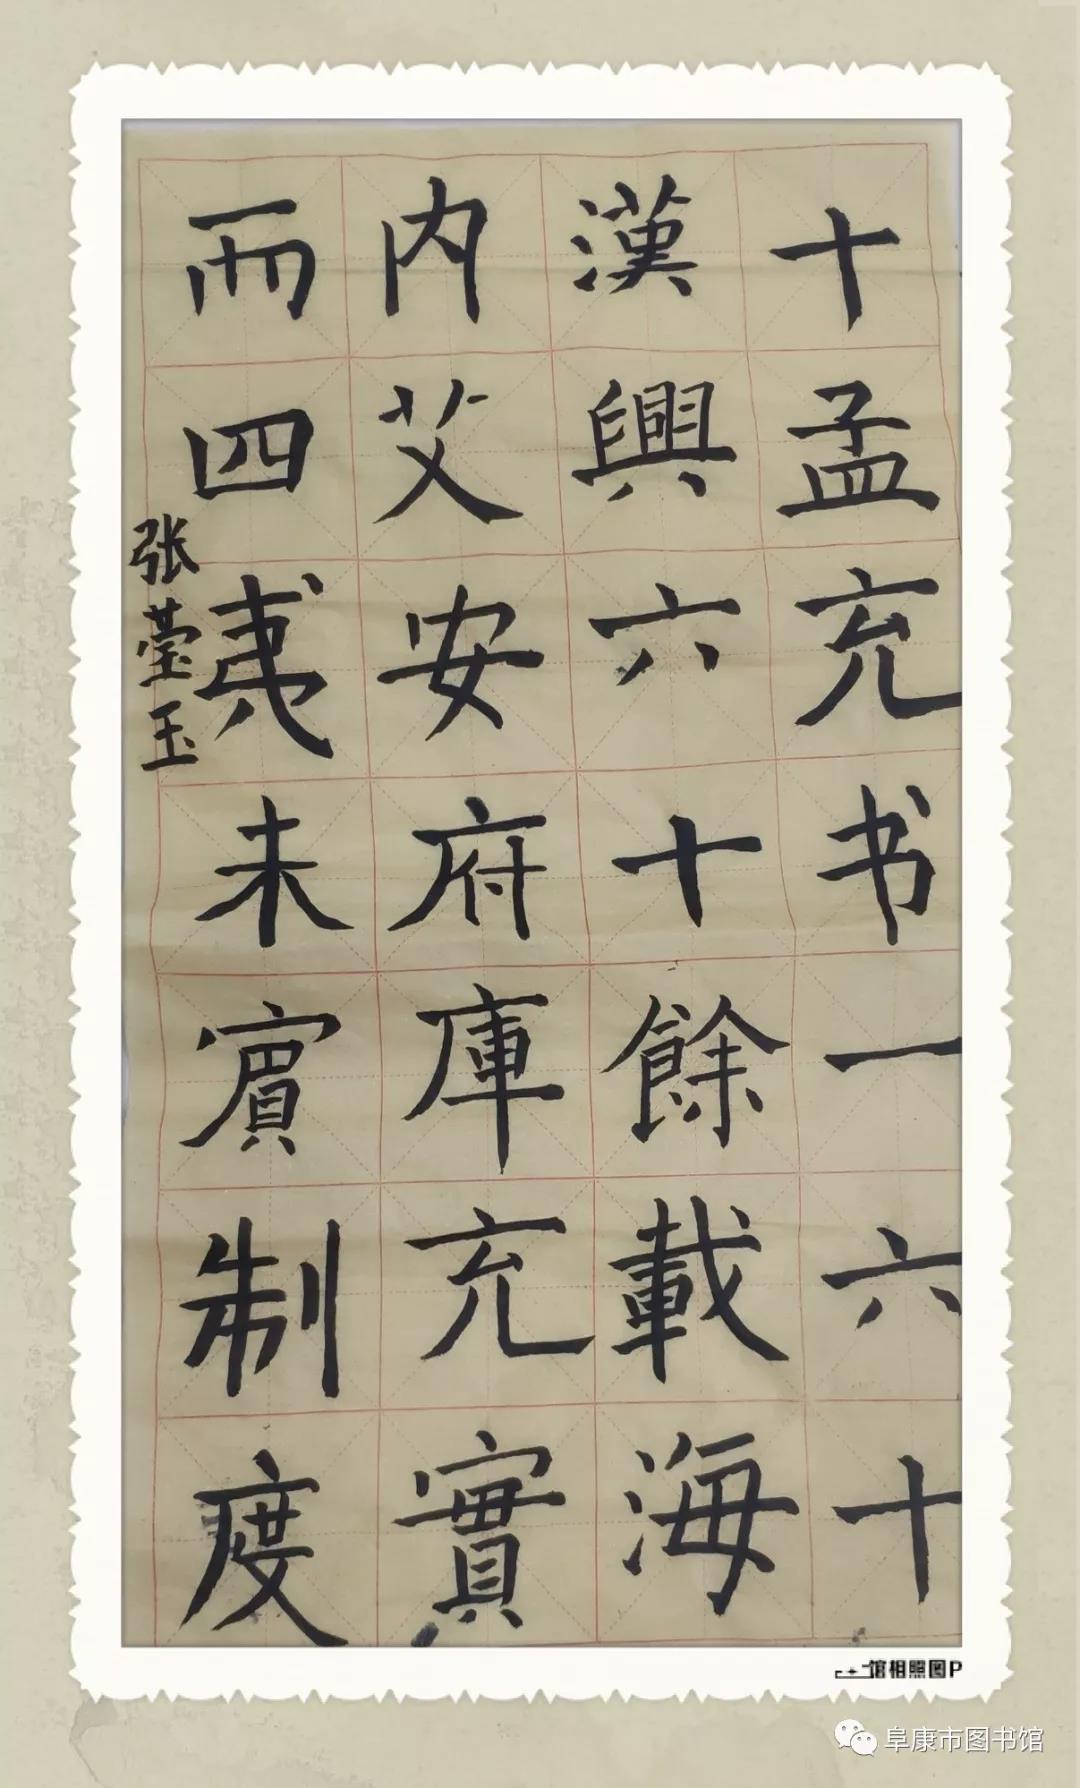 十孟充书一六十
漢興六十餘載海
内艾安府庫充實
而四夷未賓制度
张莹玉
馆相照图P
阜康市图书馆